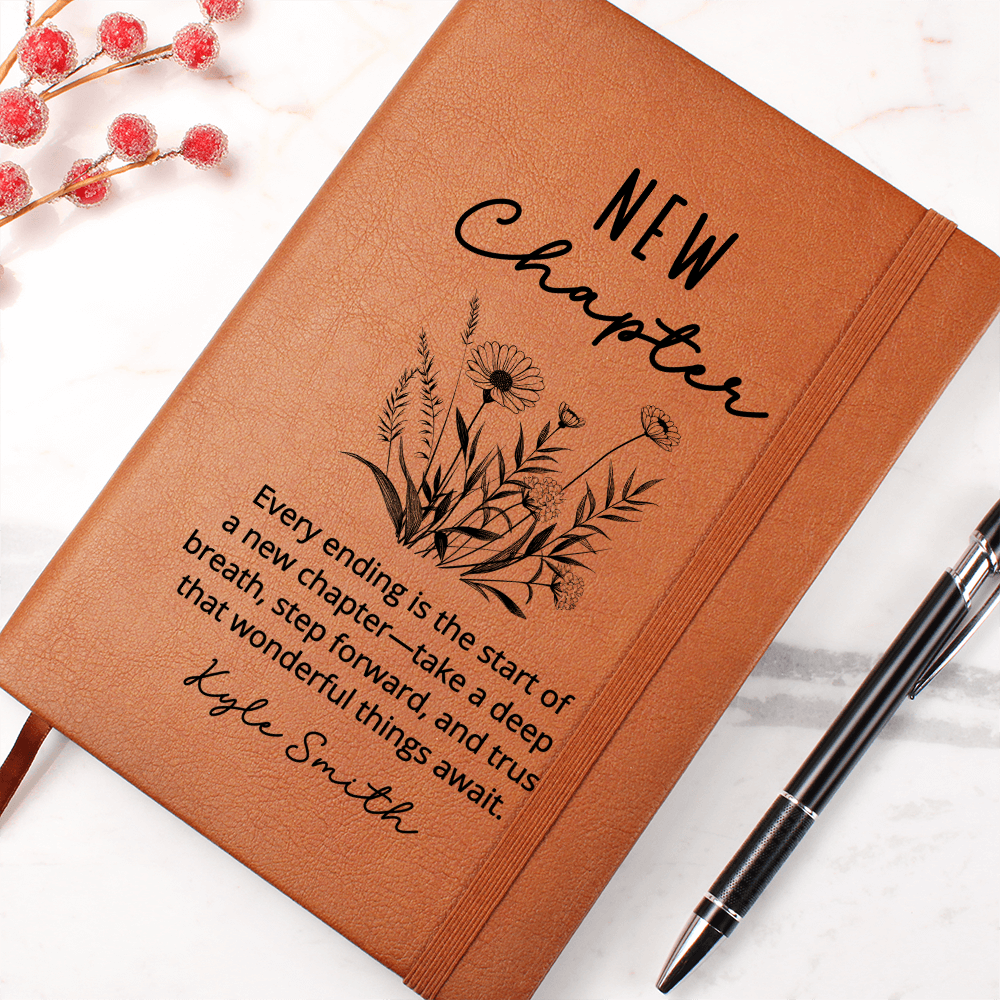 NEW
Chapter
Every ending is the start of
a new chapter—take a deep
breath, step forward, and trus
that wonderful things await.
Kyle Smith